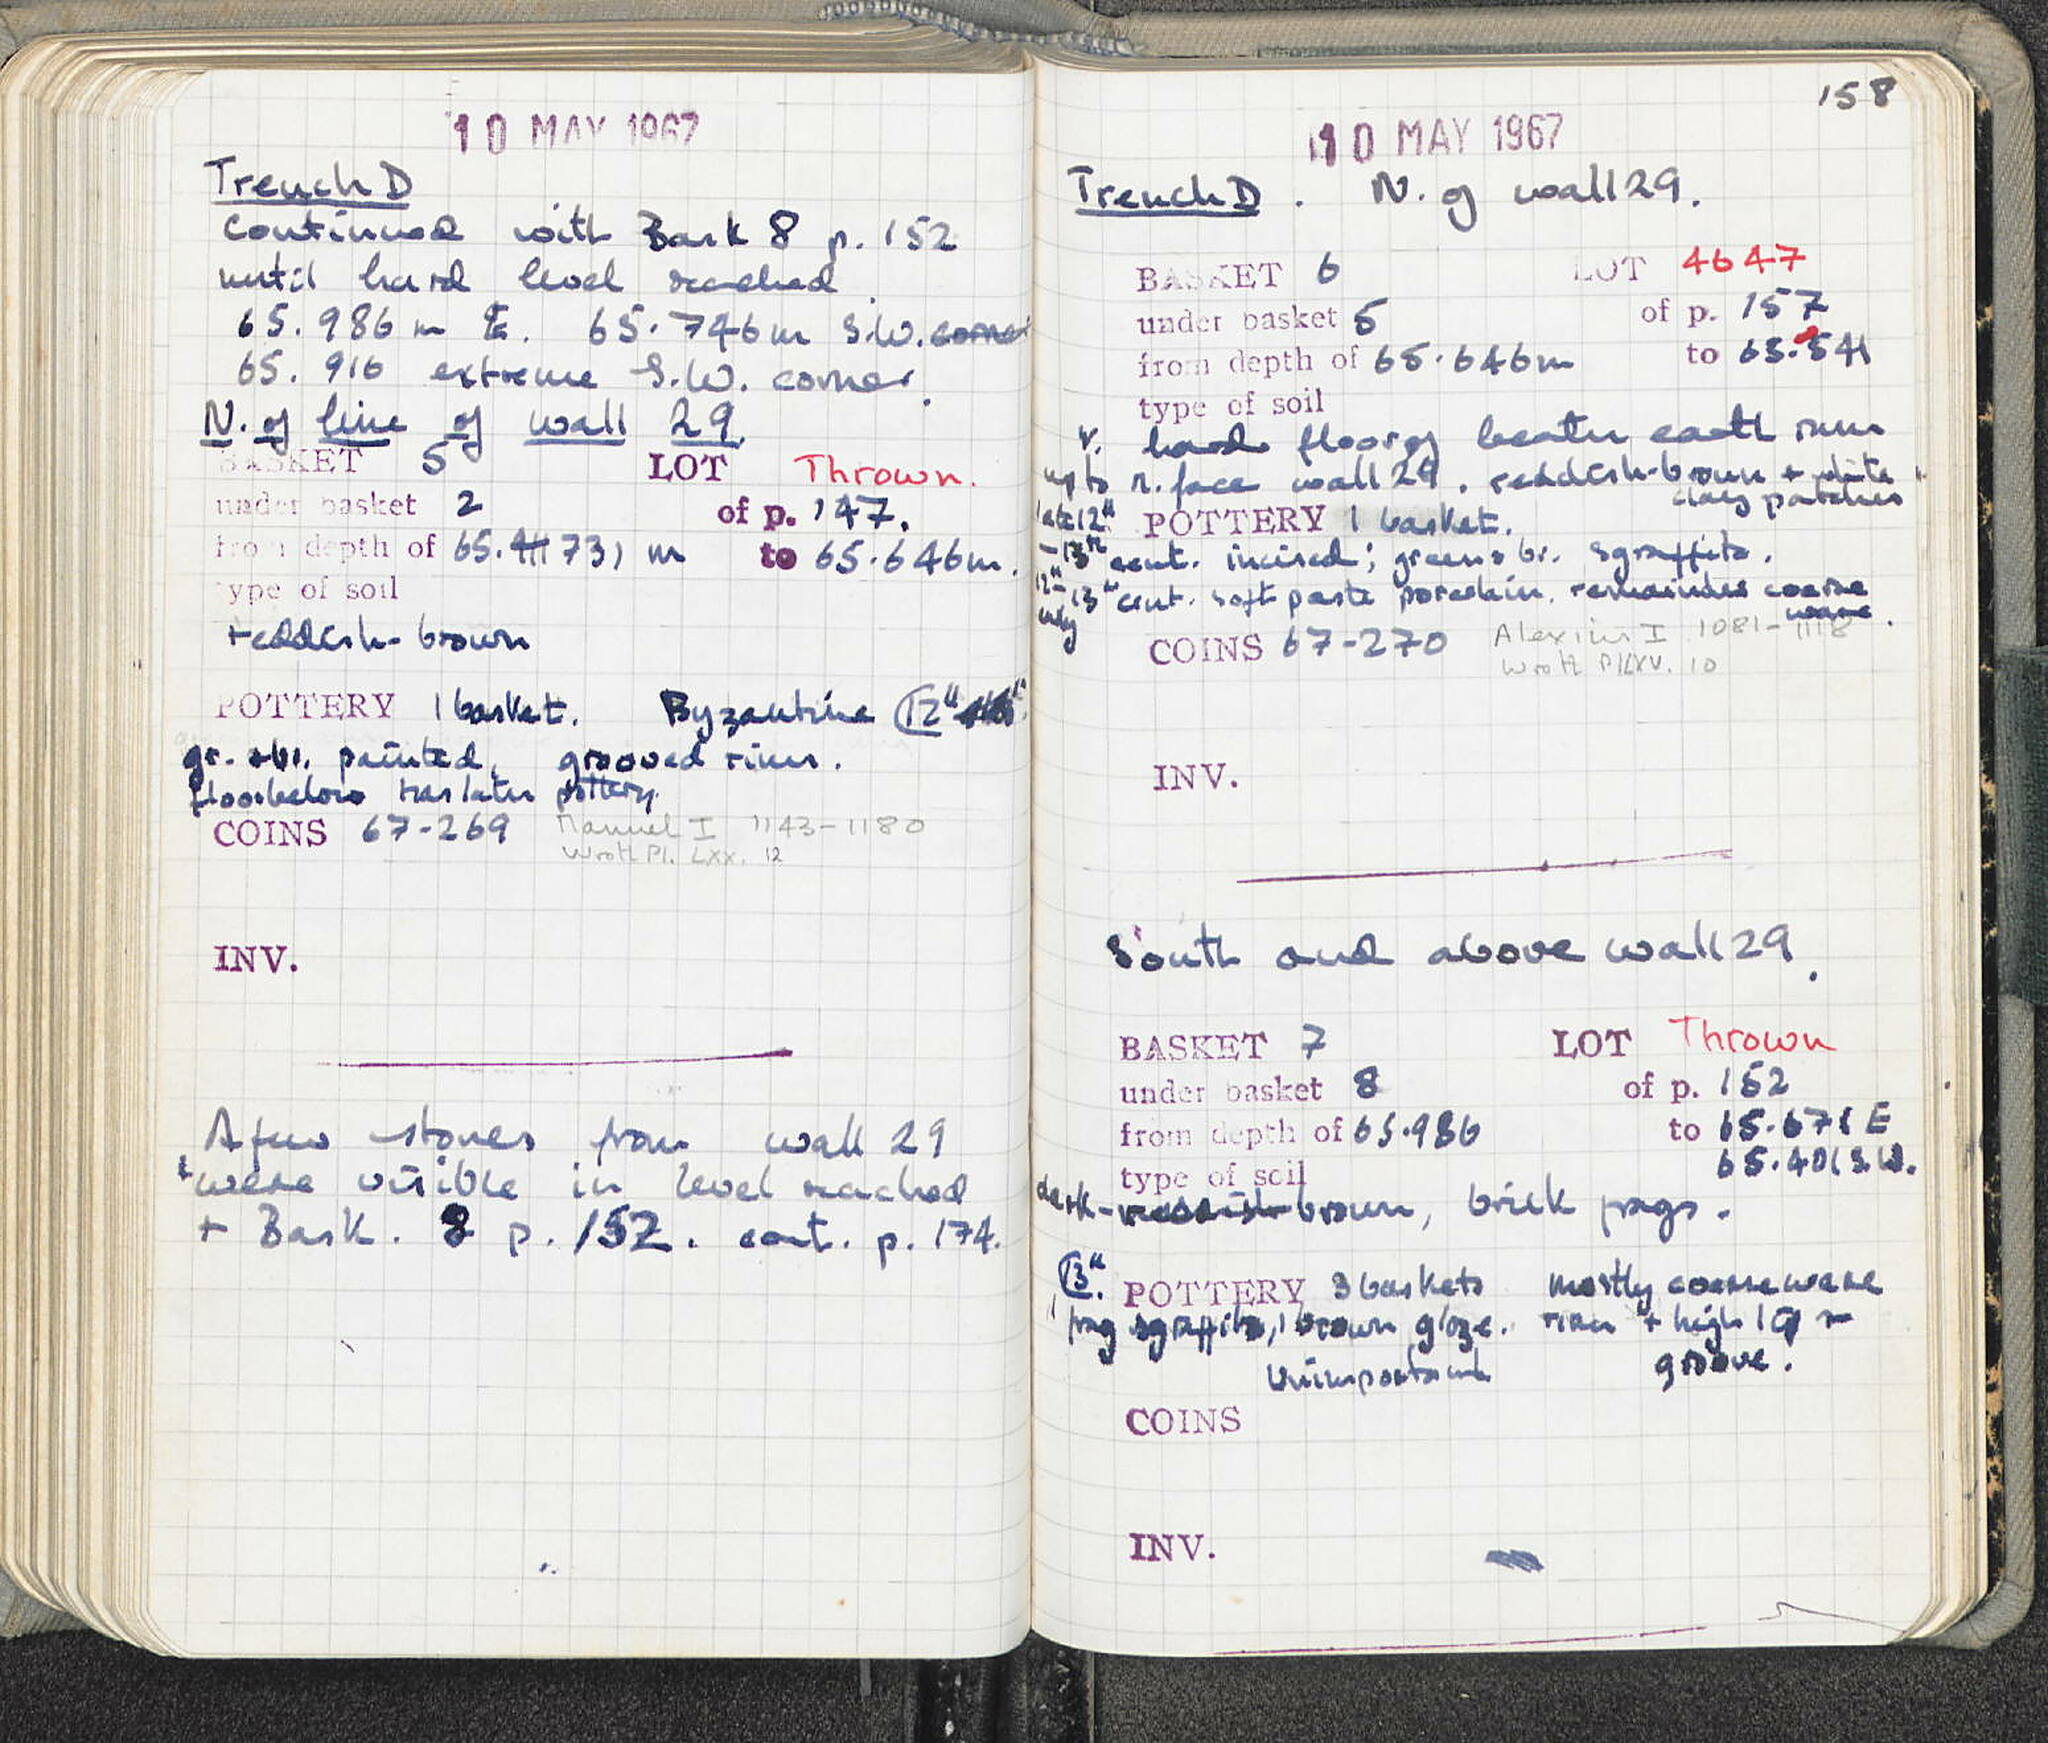 10 MAY 1967
Trench D
continued with Bask 8 p. 152
until hard level reached.
65.986 m E. 65.746m S.W. corner
65.916 extreme S.W. corner.
N. of line of wall 29
BASKET 5 LOT Thrown.
under basket 2 of p. 147.
from depth of 65.731 m to 65.646m.
type of soil
reddish-brown
POTTERY 1 basket. Byzantine 12"
gr. + br. painted, grooved rims.
floor below has later pottery.
COINS 67-269 Manuel I 1143-1180
Wroth Pl. LXX. 12
INV.
A few stones from wall 29
were visible in level reached
+ Bask. 8 p. 152. cont. p. 174.
158
10 MAY 1967
Trench D. N. of wall 29.
BASKET 6 LOT 4647
under basket 5 of p. 157
from depth of 65.646m to 65.541
type of soil
v. hard floor of beaten earth runs
up to n. face wall 29. reddish-brown + white
clay patches
late 12"
POTTERY 1 basket.
-13" cent. incised; green & br. sgraffito.
12"-
early 13" cent. soft paste porcelain. remainder coarse
ware.
COINS 67-270 Alexius I 1081-1118
Wroth Pl. LXV. 10
INV.
South and above wall 29.
BASKET 7 LOT Thrown
under basket 8 of p. 152
from depth of 65.986 to 65.671 E
65.401 S.W.
type of soil
dark-reddish-brown, brick frags.
13".
POTTERY 3 baskets mostly coarse ware
1 frag sgraffito, 1 brown glaze. rim + high
unimportant groove.
COINS
INV.